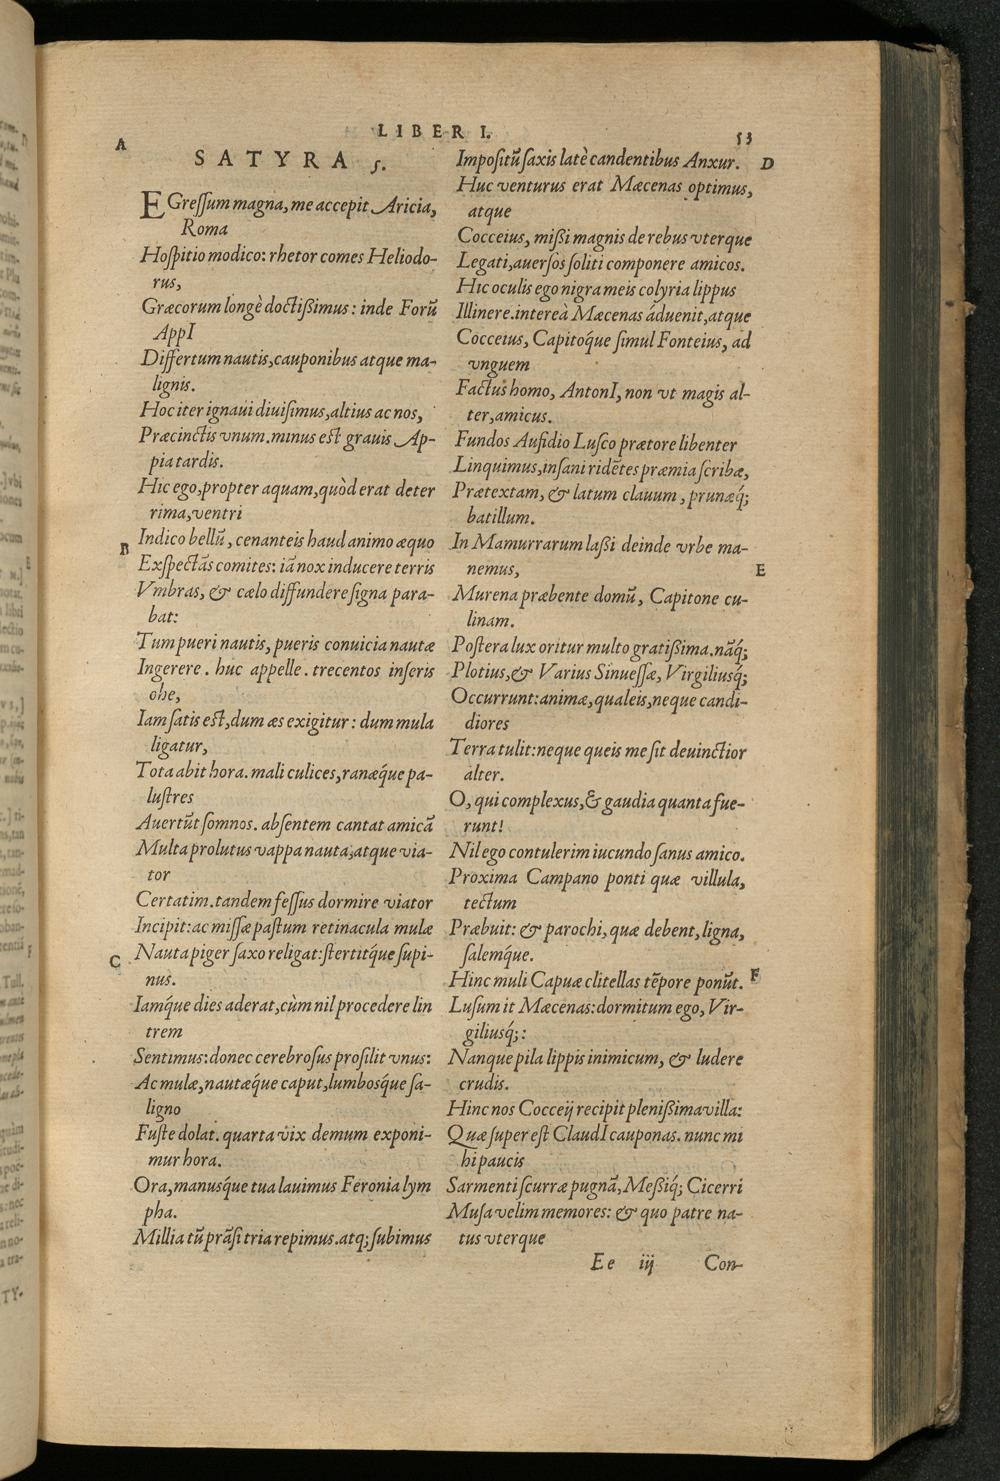 LIBER I. 53
A
SATYRA 5.
EGreſſum magna, me accepit Aricia,
Roma
Hoſpitio modico: rhetor comes Heliodo-
rus,
Græcorum longè doctißimus: inde Forũ
AppI
Differtum nautis, cauponibus atque ma-
lignis.
Hoc iter ignaui diuiſimus, altius ac nos,
Præcinctis vnum. minus eſt grauis Ap-
pia tardis.
Hic ego, propter aquam, quòd erat deter
rima, ventri
B
Indico bellũ, cenanteis haud animo æquo
Exſpectãs comites: iã nox inducere terris
Vmbras, & cælo diffundere ſigna para-
bat:
Tum pueri nautis, pueris conuicia nautæ
Ingerere. huc appelle. trecentos inſeris
ohe,
Iam ſatis eſt, dum æs exigitur: dum mula
ligatur,
Tota abit hora. mali culices, ranæq́ue pa-
luſtres
Auertũt ſomnos. abſentem cantat amicã
Multa prolutus vappa nauta, atque via-
tor
Certatim. tandem feſſus dormire viator
Incipit: ac miſſæ paſtum retinacula mulæ
C
Nauta piger ſaxo religat: ſtertitq́ue ſupi-
nus.
Iamq́ue dies aderat, cùm nil procedere lin
trem
Sentimus: donec cerebroſus proſilit vnus:
Ac mulæ, nautæq́ue caput, lumboſq́ue ſa-
ligno
Fuſte dolat. quarta vix demum exponi-
mur hora.
Ora, manuſq́ue tua lauimus Feronia lym
pha.
Millia tũ prãſi tria repimus. atq; ſubimus
Impoſitũ ſaxis latè candentibus Anxur.
D
Huc venturus erat Mæcenas optimus,
atque
Cocceius, mißi magnis de rebus vterque
Legati, auerſos ſoliti componere amicos.
Hic oculis ego nigra meis colyria lippus
Illinere. intereà Mæcenas aduenit, atque
Cocceius, Capitoq́ue ſimul Fonteius, ad
vnguem
Factus homo, AntonI, non vt magis al-
ter, amicus.
Fundos Aufidio Luſco prætore libenter
Linquimus, inſani ridẽtes præmia ſcribæ,
Prætextam, & latum clauum, prunæq́;
batillum.
In Mamurrarum laßi deinde vrbe ma-
nemus,
E
Murena præbente domũ, Capitone cu-
linam.
Poſtera lux oritur multo gratißima. nãq́;
Plotius, & Varius Sinueſſæ, Virgiliusq́;
Occurrunt: animæ, qualeis, neque candi-
diores
Terra tulit: neque queis me ſit deuinctior
alter.
O, qui complexus, & gaudia quanta fue-
runt!
Nil ego contulerim iucundo ſanus amico.
Proxima Campano ponti quæ villula,
tectum
Præbuit: & parochi, quæ debent, ligna,
ſalemq́ue.
F
Hinc muli Capuæ clitellas tẽpore ponũt.
Luſum it Mæcenas: dormitum ego, Vir-
giliusq́;:
Nanque pila lippis inimicum, & ludere
crudis.
Hinc nos Cocceij recipit plenißima villa:
Quæ ſuper eſt ClaudI cauponas. nunc mi
hi paucis
Sarmenti ſcurræ pugnã, Meßiq́; Cicerri
Muſa velim memores: & quo patre na-
tus vterque
Ee iij Con-